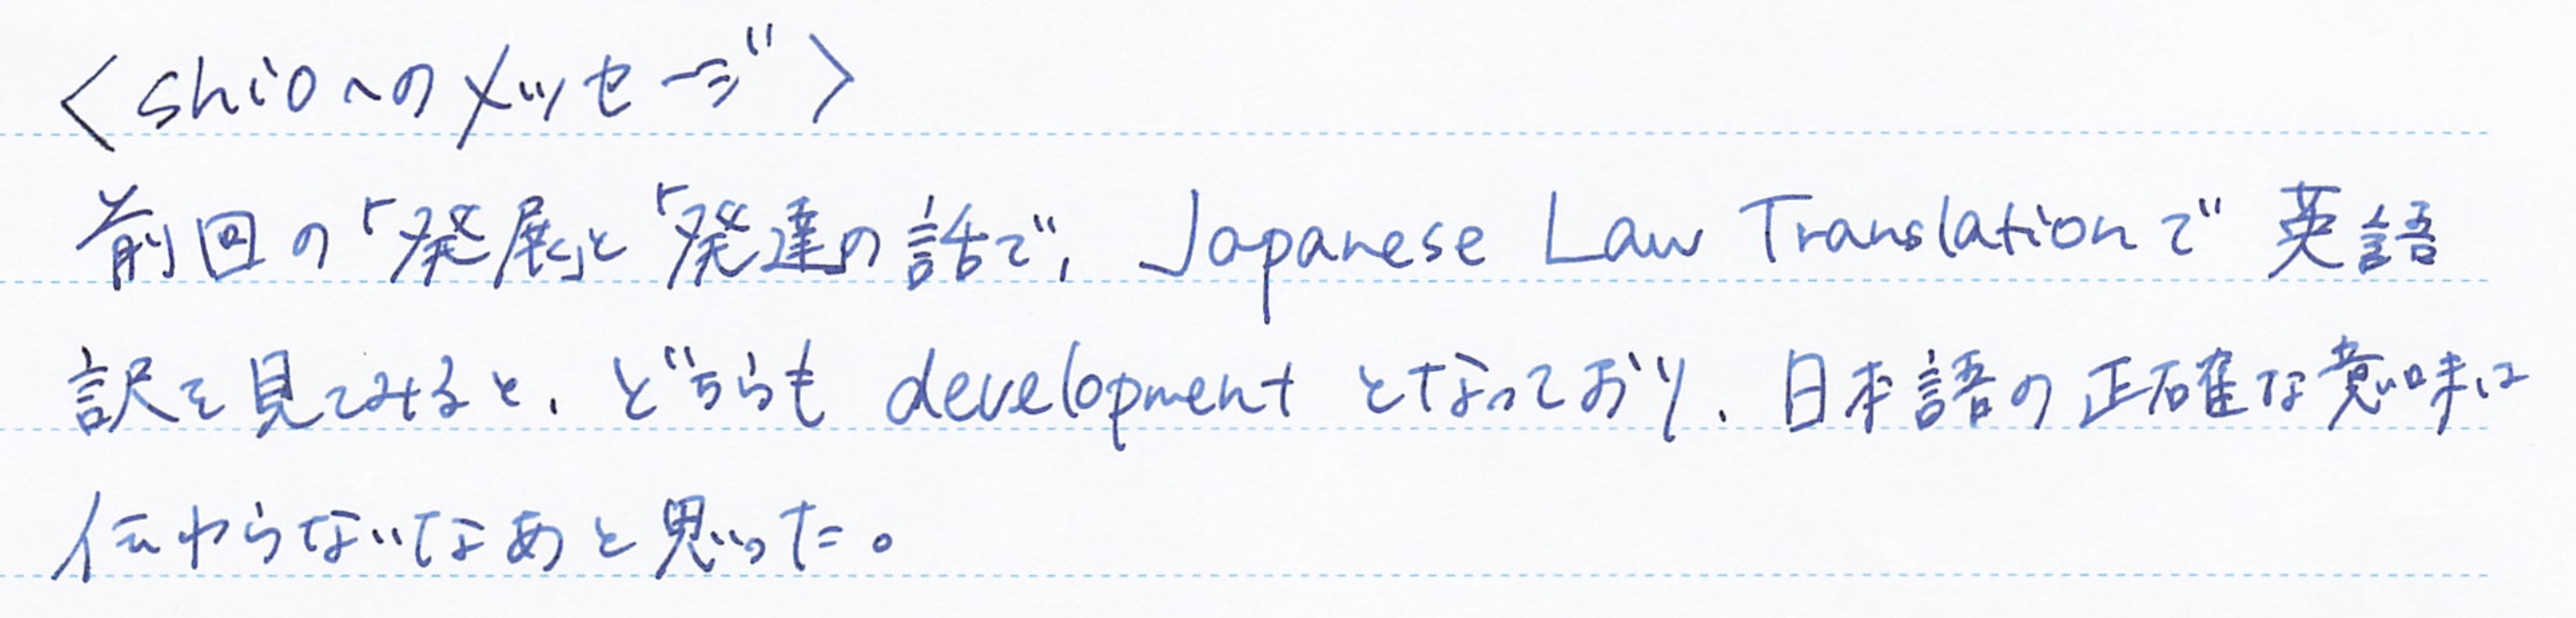 <shioへのメッセージ>
前回の「発展」と「発達」の話で、Japanese Law Translationで英語
訳を見てみると、どちらも development となっており、日本語の正確な意味は
伝わらないなあと思った。